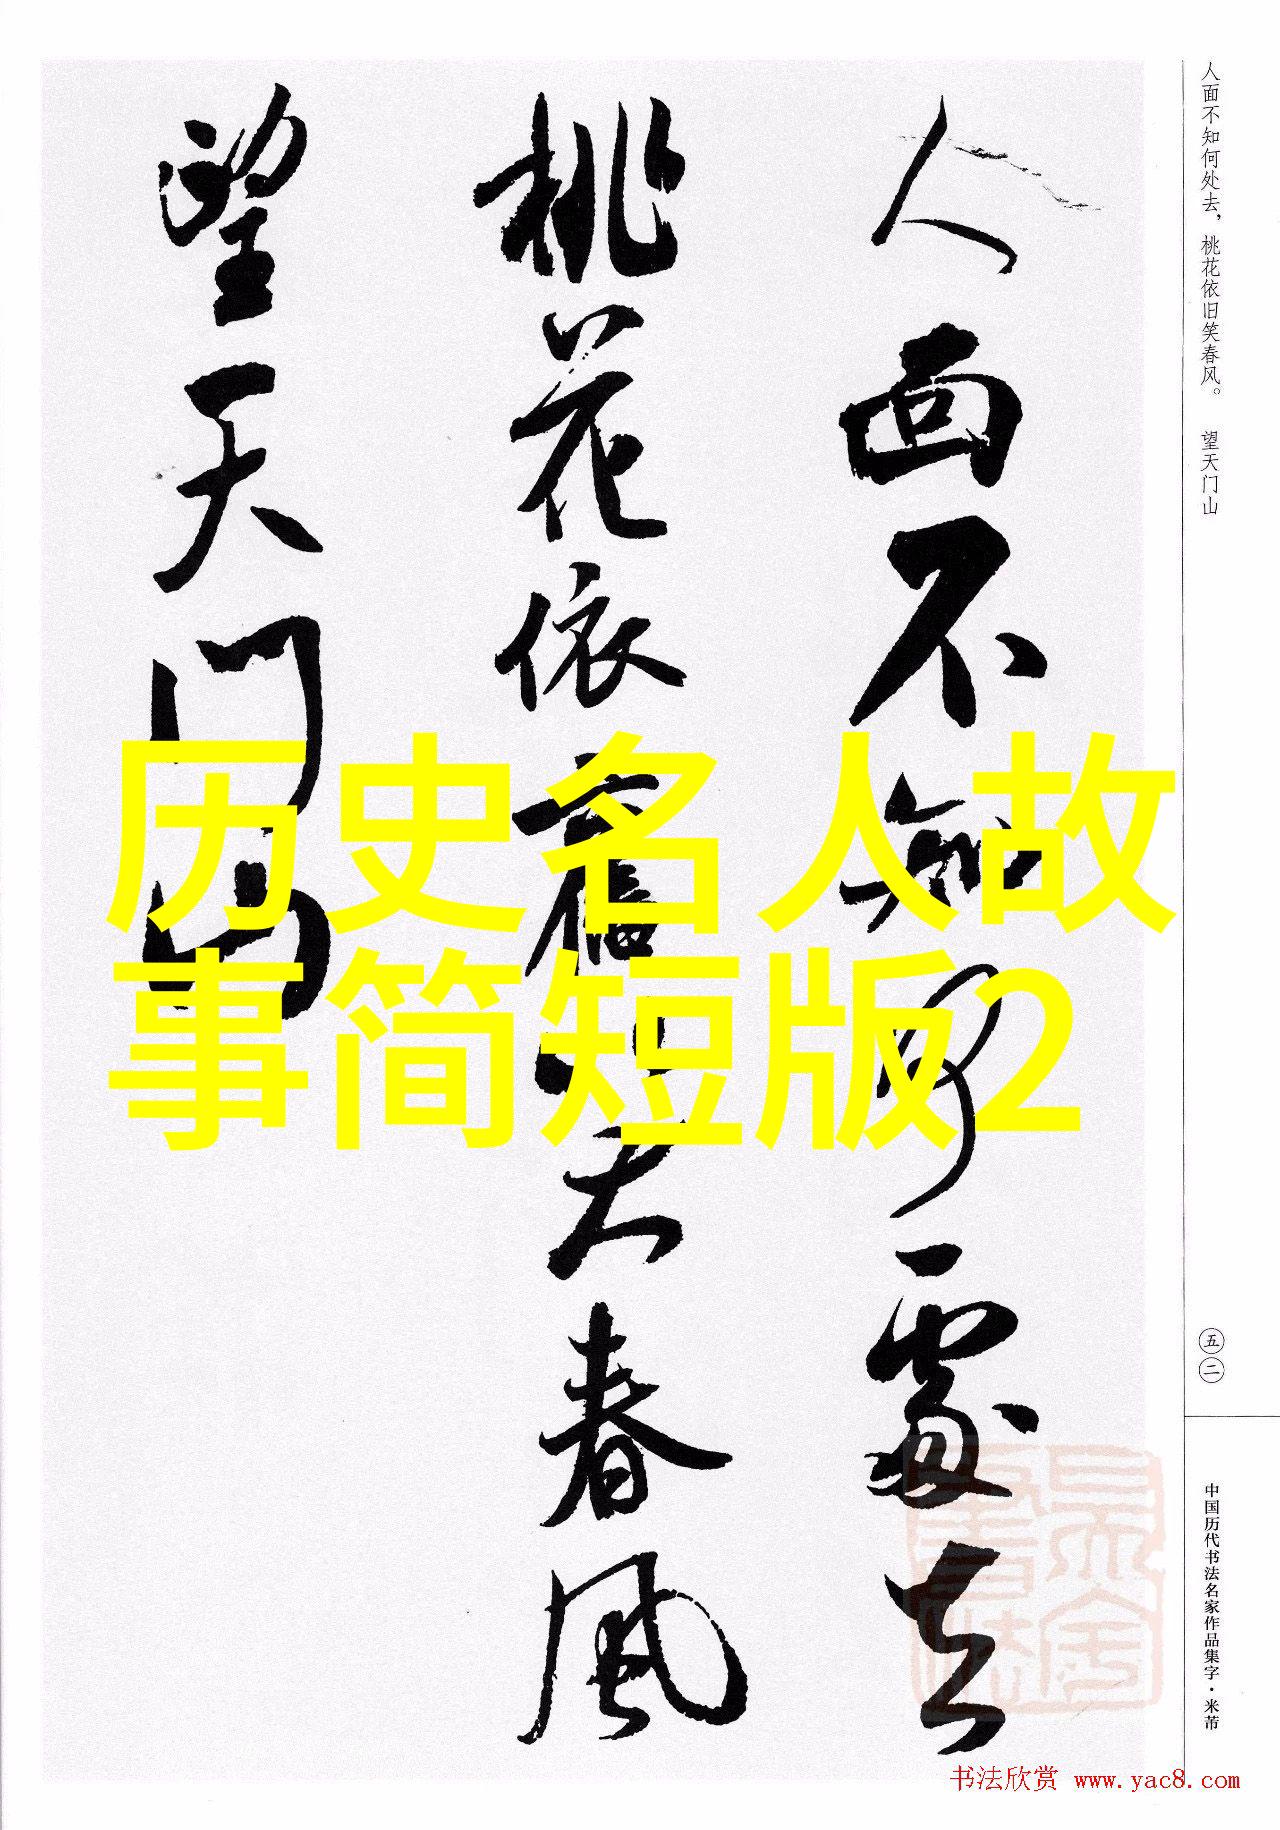 人面不知何处去，桃花依旧笑春风。 望天门山
人面不知何處去
桃花依舊笑春風
望天门山
历史名人故
事简短版2
五二
中国历代书法名家作品集字·米芾
书法欣赏 www.yac8.com